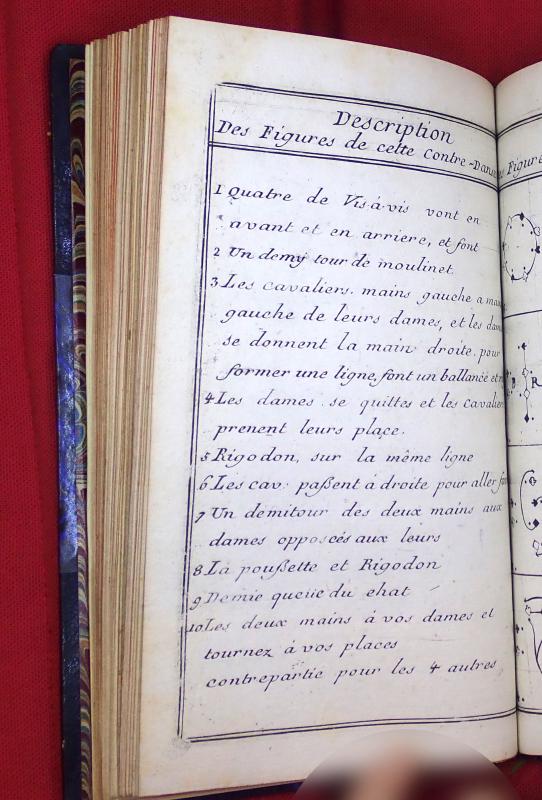 Description
Des Figures de cette Contre-Danse
1 Quatre de Vis-à-vis vont en
avant et en arriere, et font
2 Un demy tour de moulinet
3 Les cavaliers. mains gauche a
gauche de leurs dames, et les
se donnent la main droite pour
former une ligne, font un ballancé et
4 Les dames se quittes et les
prenent leurs place.
5 Rigodon, sur la même ligne
6 Les cav: paßent à droite pour aller
7 Un demitour des deux mains aux
dames opposcés aux leurs
8 La poußette et Rigodon
9 Demie queüe du chat
10 Les deux mains à vos dames et
tournez à vos places
contrepartie pour les 4 autres
Figure
R